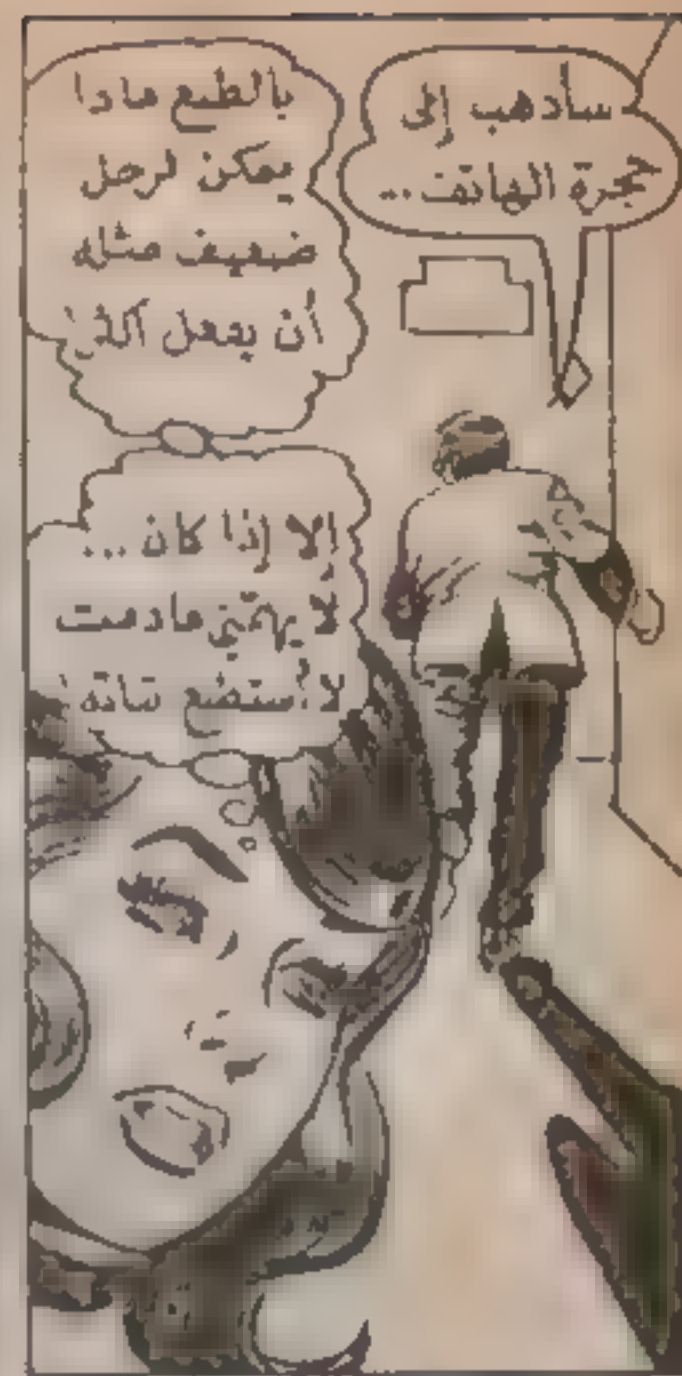 سأذهب إلى
حجرة الهاتف...
بالطبع ماذا
يمكن لرجل
ضعيف مثله
أن يفعل
إلا إذا كان...
لا يهمّني مادمت
لا أستطع